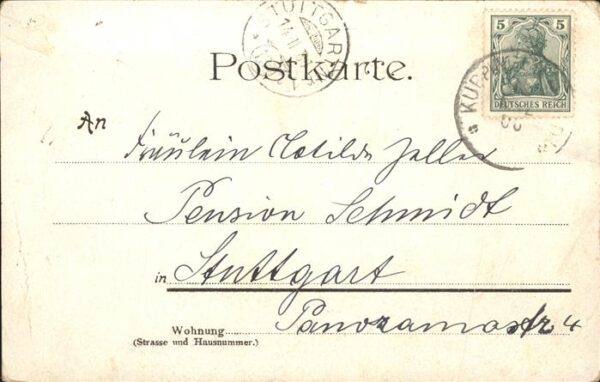 STUTTGART
14 II
5 5
DEUTSCHES REICH
Postkarte.
An
Fräulein Clotilde Zeller
Pension Schmidt
in Stuttgart
Wohnung Panoramastr 4
(Strasse und Hausnummer.)